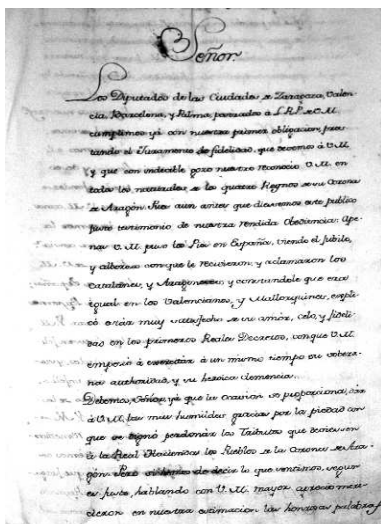 Señor.
Los Diputados de las Ciudades de Zaragoza, Valen-
cia, Barcelona, y Palma, postrados à L. R. P. de V. M.
cumplimos yà con nuestra primer obligacion, pres-
tando el Juramento de fidelidad, que devemos à V. M.
y que con indecible gozo nuestro reconociò V. M. en
todos los naturales de los quatro Reynos de su Corona
de Aragòn. Pero aun antes que diessemos este publico
justo testimonio de nuestra rendida Obediencia: Ape-
nas V. M. puso los Pies en España, viendo el jubilo,
y alborozo con que le recivieron, y aclamaron los
Catalanes, y Aragoneses, y constandole que era
igual en los Valencianos, y Mallorquines, expli-
cò estàr muy satisfecho de su amòr, celo, y fideli-
dad en los primeros Reales Decretos, con que V. M.
empezò à exercitàr à un mismo tiempo su sobera-
na authoridad, y su heroica clemencia.
Devemos, Señor, yà que la ocasion se proporciona, dàr
à V. M. las muy humildes gracias por la piedad con
que se dignò perdonàr los Tributos que devian
à la Real Hacienda los Pueblos de la Corona de Ara-
gòn. Pero si hemos de decir lo que sentimos, segun
es justo, hablando con V. M. mayor aprecio mere-
cieron en nuestra estimacion las honrosas palabras